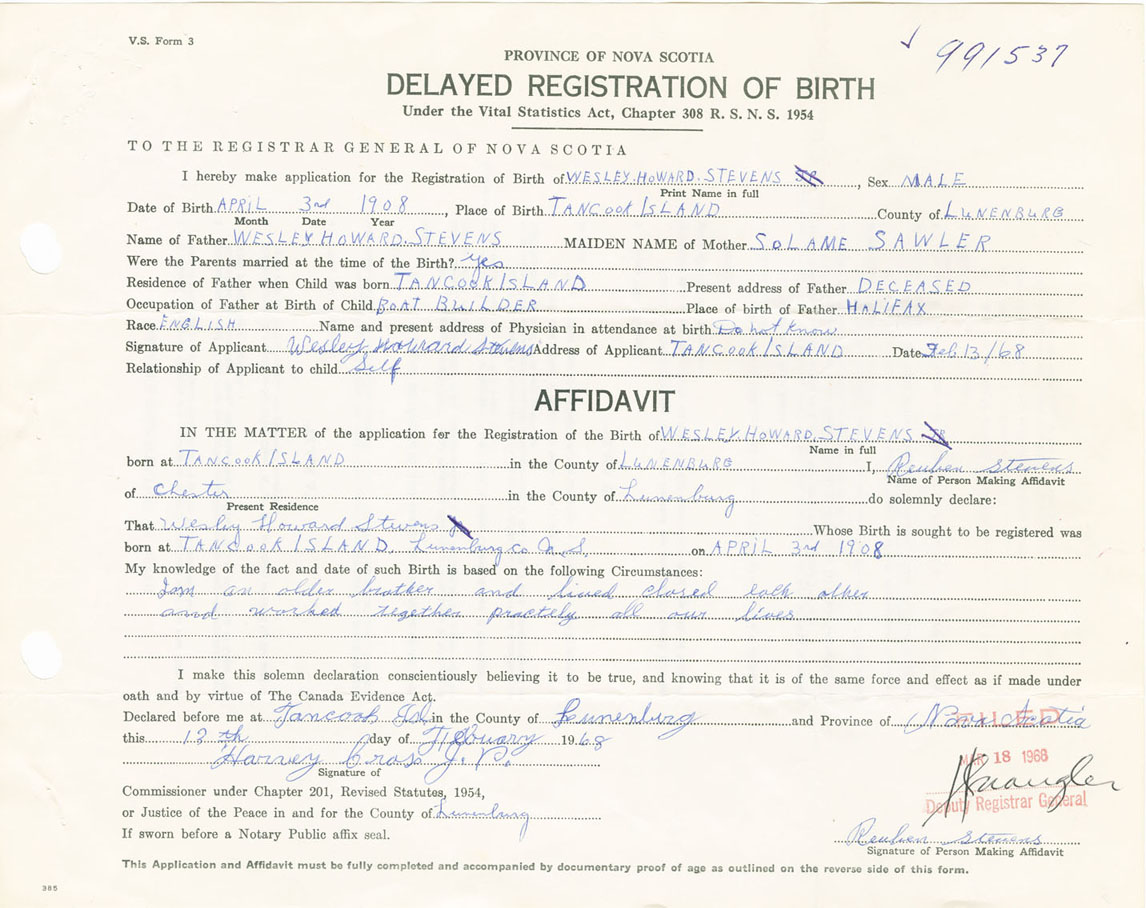 V.S. Form 3
991537
PROVINCE OF NOVA SCOTIA
DELAYED REGISTRATION OF BIRTH
Under the Vital Statistics Act, Chapter 308 R. S. N. S. 1954
TO THE REGISTRAR GENERAL OF NOVA SCOTIA
I hereby make application for the Registration of Birth of WESLEY. HOWARD. STEVENS JR, Sex MALE
Print Name in full
Date of Birth APRIL 3rd 1908, Place of Birth TANCOOK ISLAND County of LUNENBURG
Month Date Year
Name of Father WESLEY HOWARD. STEVENS MAIDEN NAME of Mother SOLAME SAWLER
Were the Parents married at the time of the Birth? yes
Residence of Father when Child was born TANCOOK ISLAND Present address of Father DECEASED
Occupation of Father at Birth of Child BOAT BUILDER Place of birth of Father HALIFAX
Race ENGLISH Name and present address of Physician in attendance at birth Do not Know
Signature of Applicant Wesley Howard Stevens Address of Applicant TANCOOK ISLAND Date Feb 13/68
Relationship of Applicant to child Self
AFFIDAVIT
IN THE MATTER of the application for the Registration of the Birth of WESLEY. HOWARD. STEVENS JR
Name in full
born at TANCOOK ISLAND in the County of LUNENBURG I, Reuben Stevens
Name of Person Making Affidavit
of Chester in the County of Lunenburg do solemnly declare:
Present Residence
That Wesley Howard Stevens Whose Birth is sought to be registered was
born at TANCOOK ISLAND Lunenburg co N.S. on APRIL 3rd 1908
My knowledge of the fact and date of such Birth is based on the following Circumstances:
I am an older brother and lived closed each other
and worked together practely all our lives
I make this solemn declaration conscientiously believing it to be true, and knowing that it is of the same force and effect as if made under
oath and by virtue of The Canada Evidence Act.
Declared before me at Tancook Isl in the County of Lunenburg and Province of Nova Scotia
FILED
this 13 th day of February 1968
MAR 18 1968
Harvey Cross J. P.
Signature of
Commissioner under Chapter 201, Revised Statutes, 1954,
Deputy Registrar General
or Justice of the Peace in and for the County of Lunenburg
If sworn before a Notary Public affix seal.
Reuben Stevens
Signature of Person Making Affidavit
This Application and Affidavit must be fully completed and accompanied by documentary proof of age as outlined on the reverse side of this form.
385